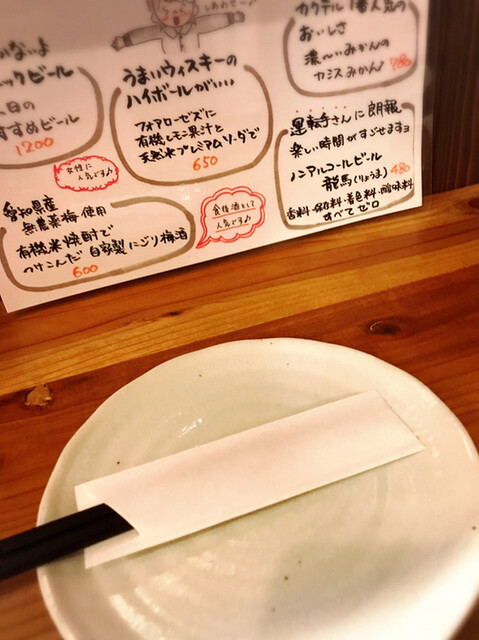 しあわせ〜♪
ないよ
ックビール
日の
すすめビール
1200
うまいウィスキーの
ハイボールがいい♪
フォアローゼズに
有機レモン果汁と
天然水プレミアムソーダで
650
カクテル1番人気の
おいしさ
濃〜いみかんの
カシスみかん♪
780
運転手さんに朗報
楽しい時間がすごせますョ
ノンアルコールビール
龍馬(りょうま) 480
香料・保存料・着色料・酸味料
すべてゼロ
女性に
人気です♪
愛知県産
無農薬梅使用
有機米焼酎で
つけこんだ 自家製にごり梅酒
600
食後酒として
人気です♪